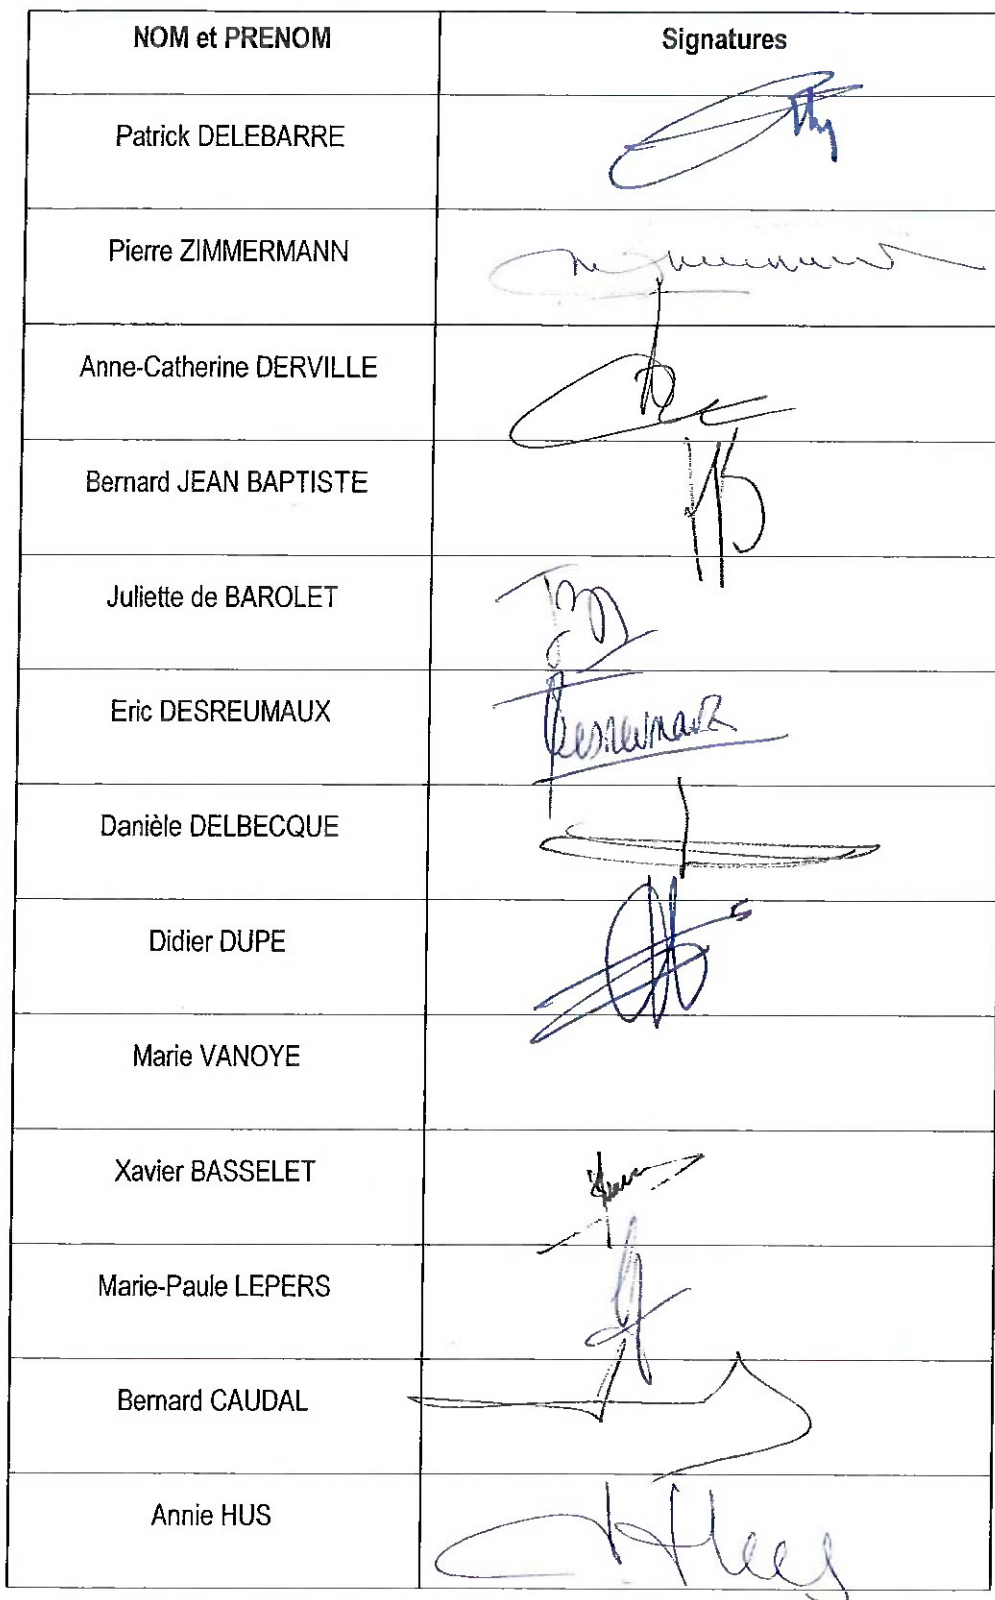 NOM et PRENOM Signatures
Patrick DELEBARRE
Pierre ZIMMERMANN
Anne-Catherine DERVILLE
Bernard JEAN BAPTISTE
Juliette de BAROLET
Eric DESREUMAUX
Danièle DELBECQUE
Didier DUPE
Marie VANOYE
Xavier BASSELET
Marie-Paule LEPERS
Bernard CAUDAL
Annie HUS